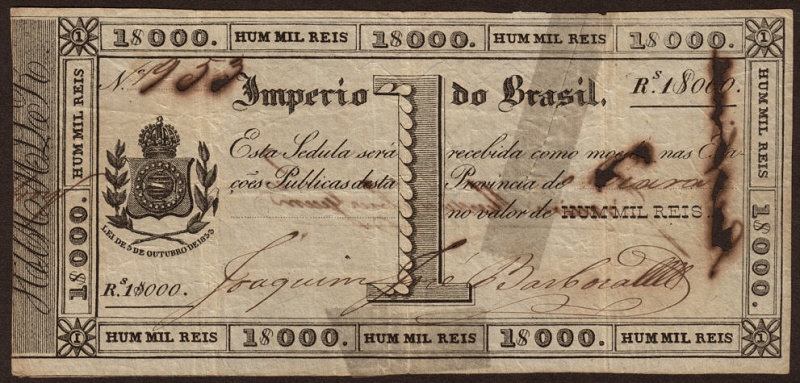 1 18000. HUM MIL REIS 18000. HUM MIL REIS 18000. 1
Nº 953 Imperio 1 do Brasil. Rˢ. 18000.
Esta Sedula será recebida como moeda nas Esta-
ções Públicas desta Provincia do Ceará
no valor de HUM MIL REIS.
LEI DE 3 DE OUTUBRO DE 1833
Rˢ. 18000. Joaquim José Barbosa
HUM MIL REIS
18000.
HUM MIL REIS
18000.
1 HUM MIL REIS 18000. HUM MIL REIS 18000. HUM MIL REIS 1